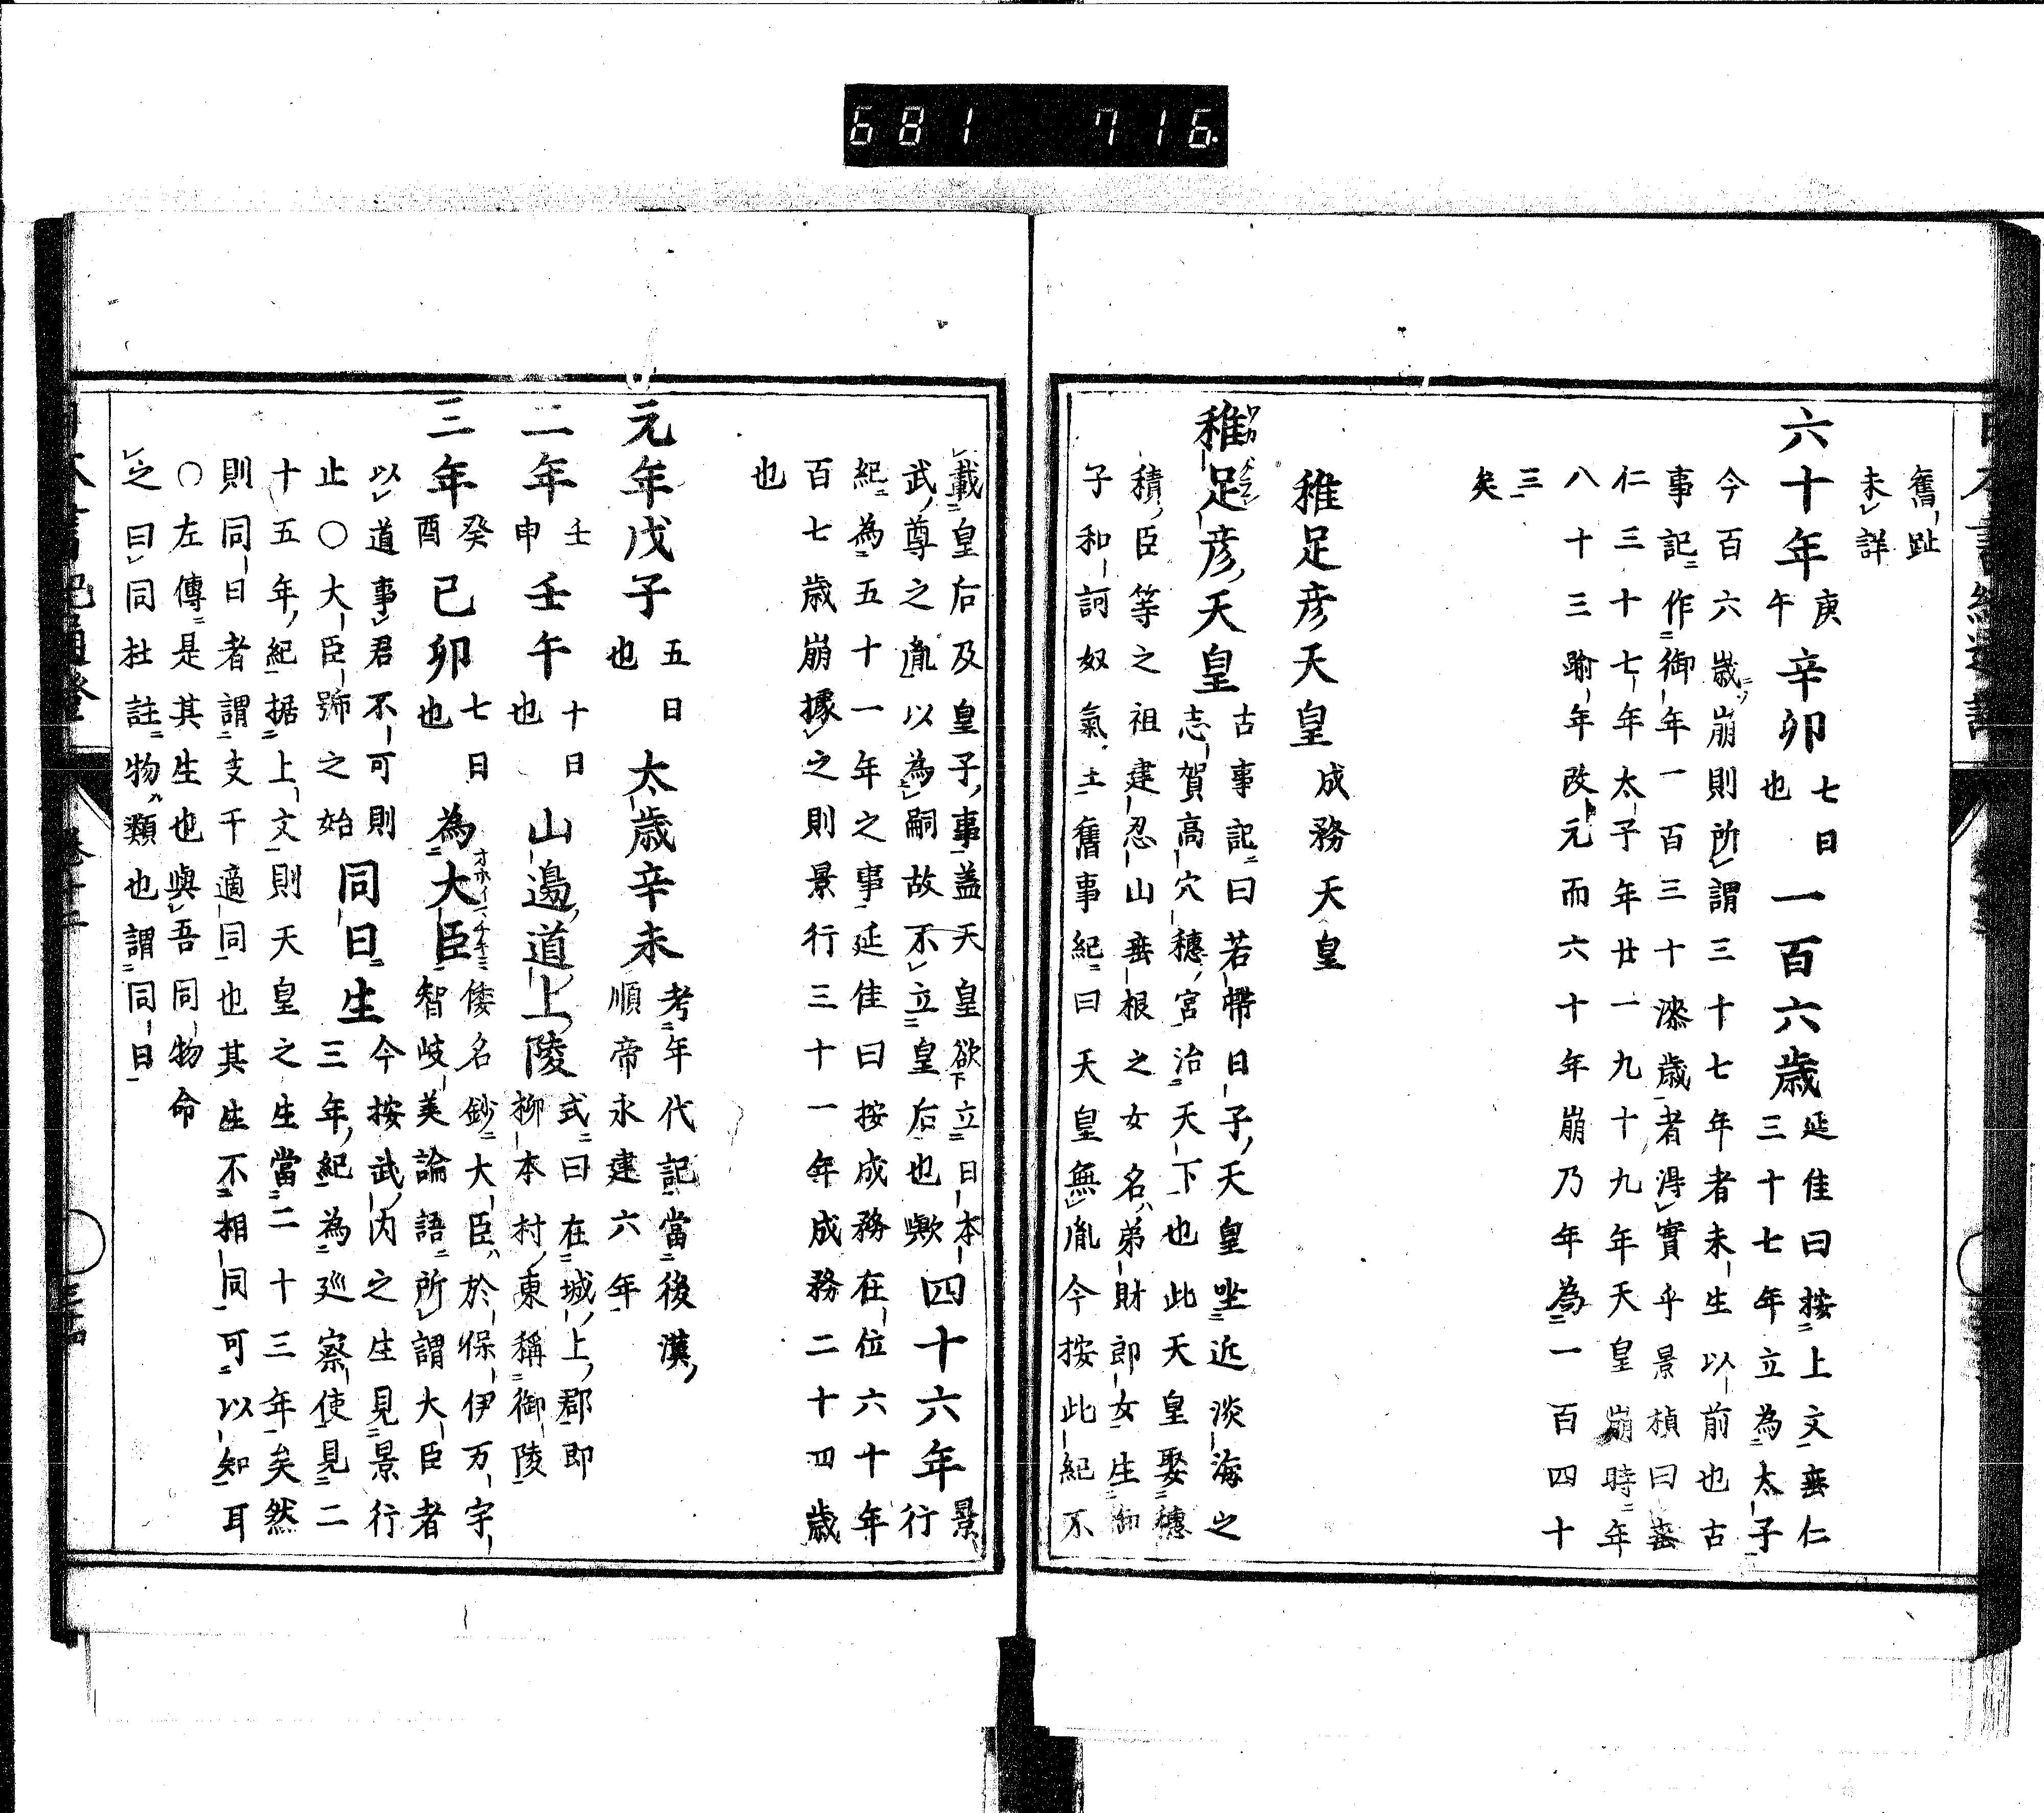 681 716
舊趾
未詳
六十年庚午辛卯七日也一百六歳延佳曰按上文垂仁
三十七年立為太子
今百六歳崩則所謂三十七年者未生以前也古
事記作御年一百三十漆歳者淂實乎景楨曰垂
仁三十七年太子年廿一九十九年天皇崩時年
八十三踰年改元而六十年崩乃年為一百四十
三
矣
稚足彦天皇成務天皇
稚足彦天皇古事記曰若帶日子天皇坐近淡海之
志賀高穴穗宮治天下也此天皇娶穗
積臣等之祖建忍山垂根之女名弟財郎女生御
子和訶奴氣王舊事紀曰天皇無胤今按此紀不
載皇后及皇子事盖天皇欲立日本
武尊之胤以為嗣故不立皇后也歟四十六年景行
紀為五十一年之事延佳曰按成務在位六十年
百七歳崩據之則景行三十一年成務二十四歳
也
元年戊子五日也太歳辛未考年代記當後漢
順帝永建六年
二年壬申壬午十日也山邉道上陵式曰在城上郡即
柳本村東稱御陵
三年癸酉己卯七日也為大臣オホイマチキミ倭名鈔大臣於保伊万宇
智岐美論語所謂大臣者
以道事君不可則
止〇大臣號之始同日生今按武内之生見景行
三年紀為廵察使見二
十五年紀据上文則天皇之生當二十三年矣然
則同日者謂支干適同也其生不相同可以知耳
〇左傳是其生也與吾同物命
之曰同杜註物類也謂同日
三十四